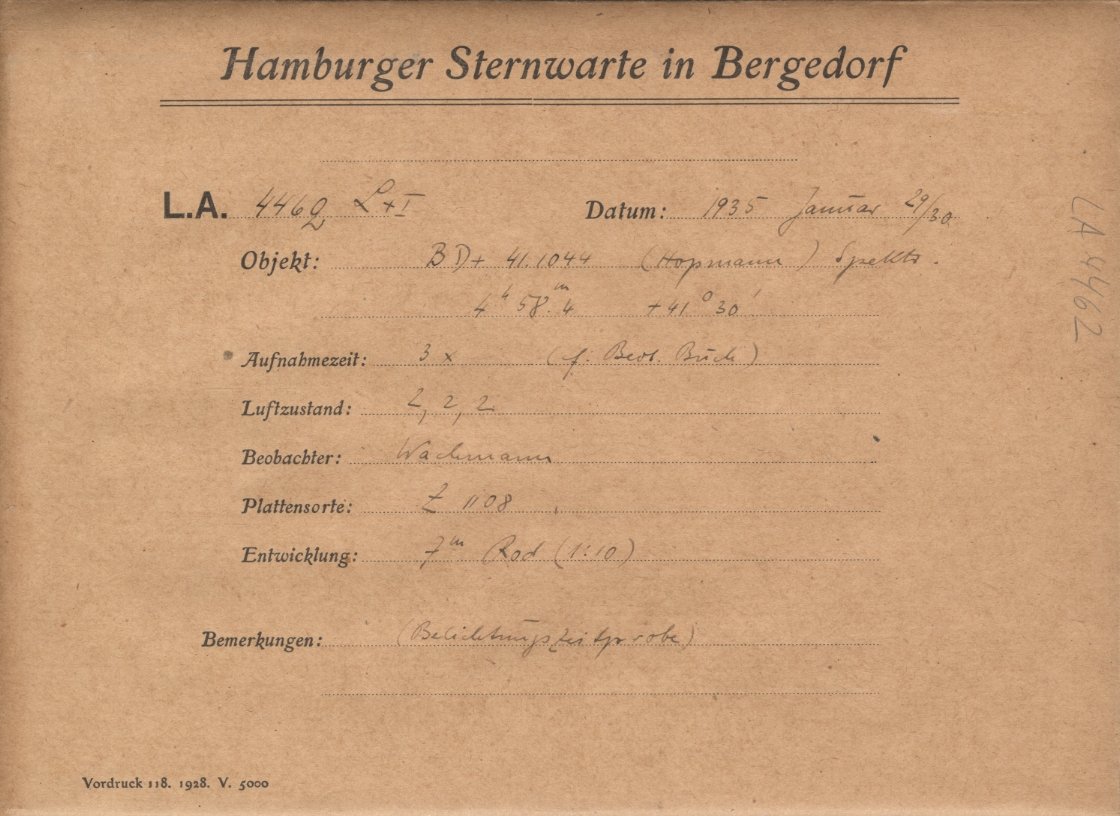 Hamburger Sternwarte in Bergedorf
L.A. 4462 L+I Datum: 1935 Januar 29/30
Objekt: BD+ 41.1044 (Hopmann) Spektr.
4h 58m.4 +41° 30'
Aufnahmezeit: 3 x (s. Beob. Buch)
Luftzustand: 2, 2, 2
Beobachter: Wachmann
Plattensorte: Z 1108
Entwicklung: 7m Rod (1:10)
Bemerkungen: (Belichtungszeitprobe)
Vordruck 118. 1928. V. 5000
LA 4462